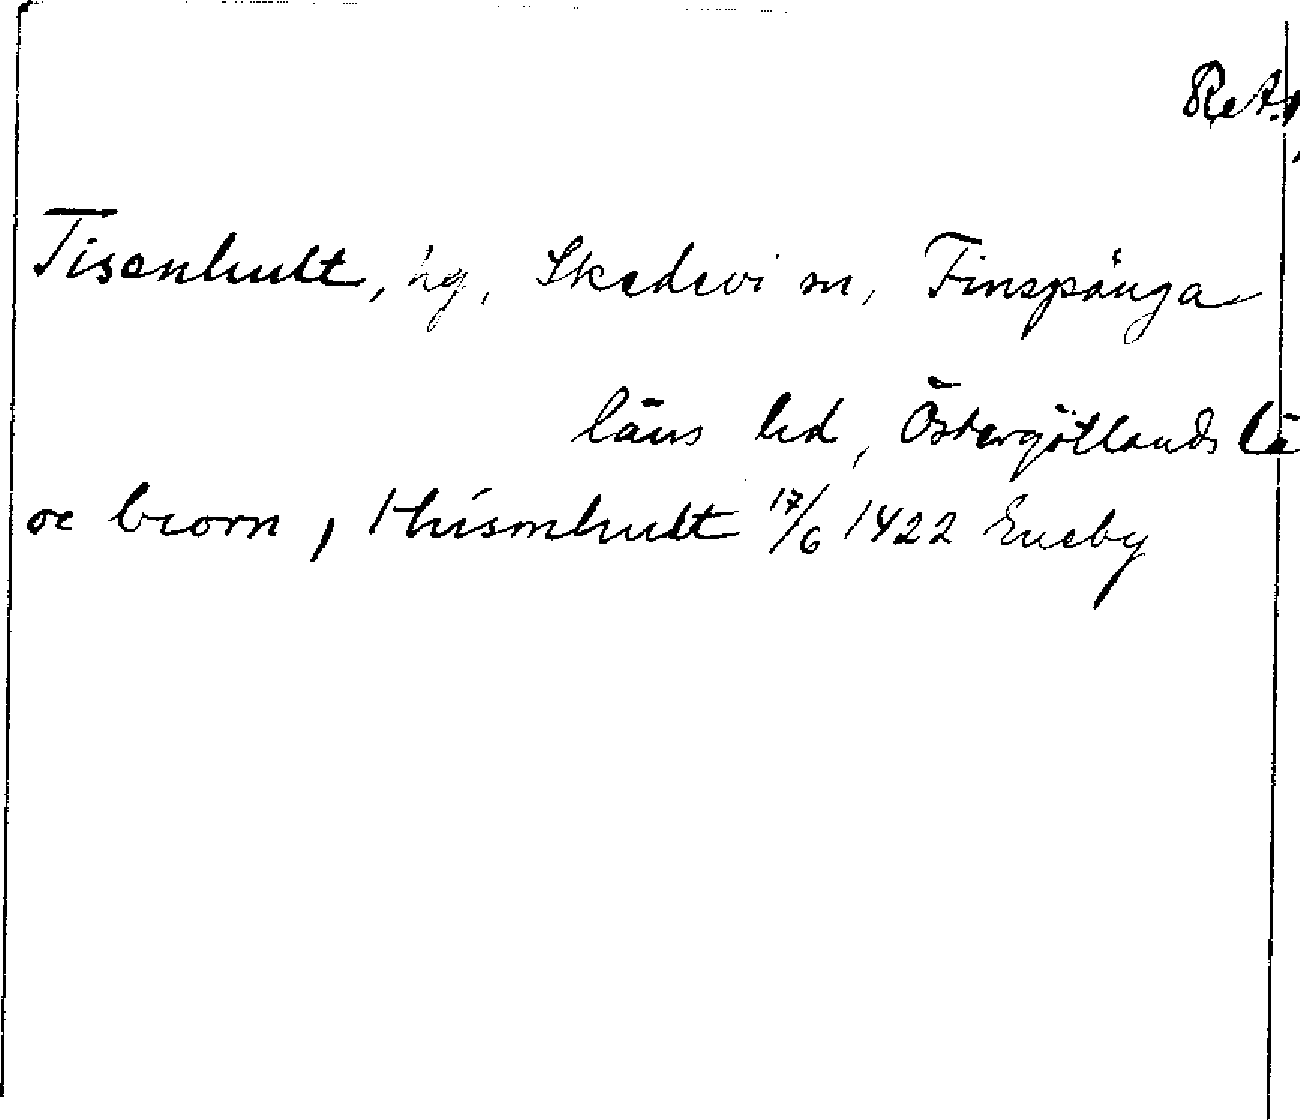 ReA.
Tisenhult, hg, Skedevi sn, Finspånga
läns hd, Östergötlands lä
oc biorn, thismhult 17/6 1422 Eneby